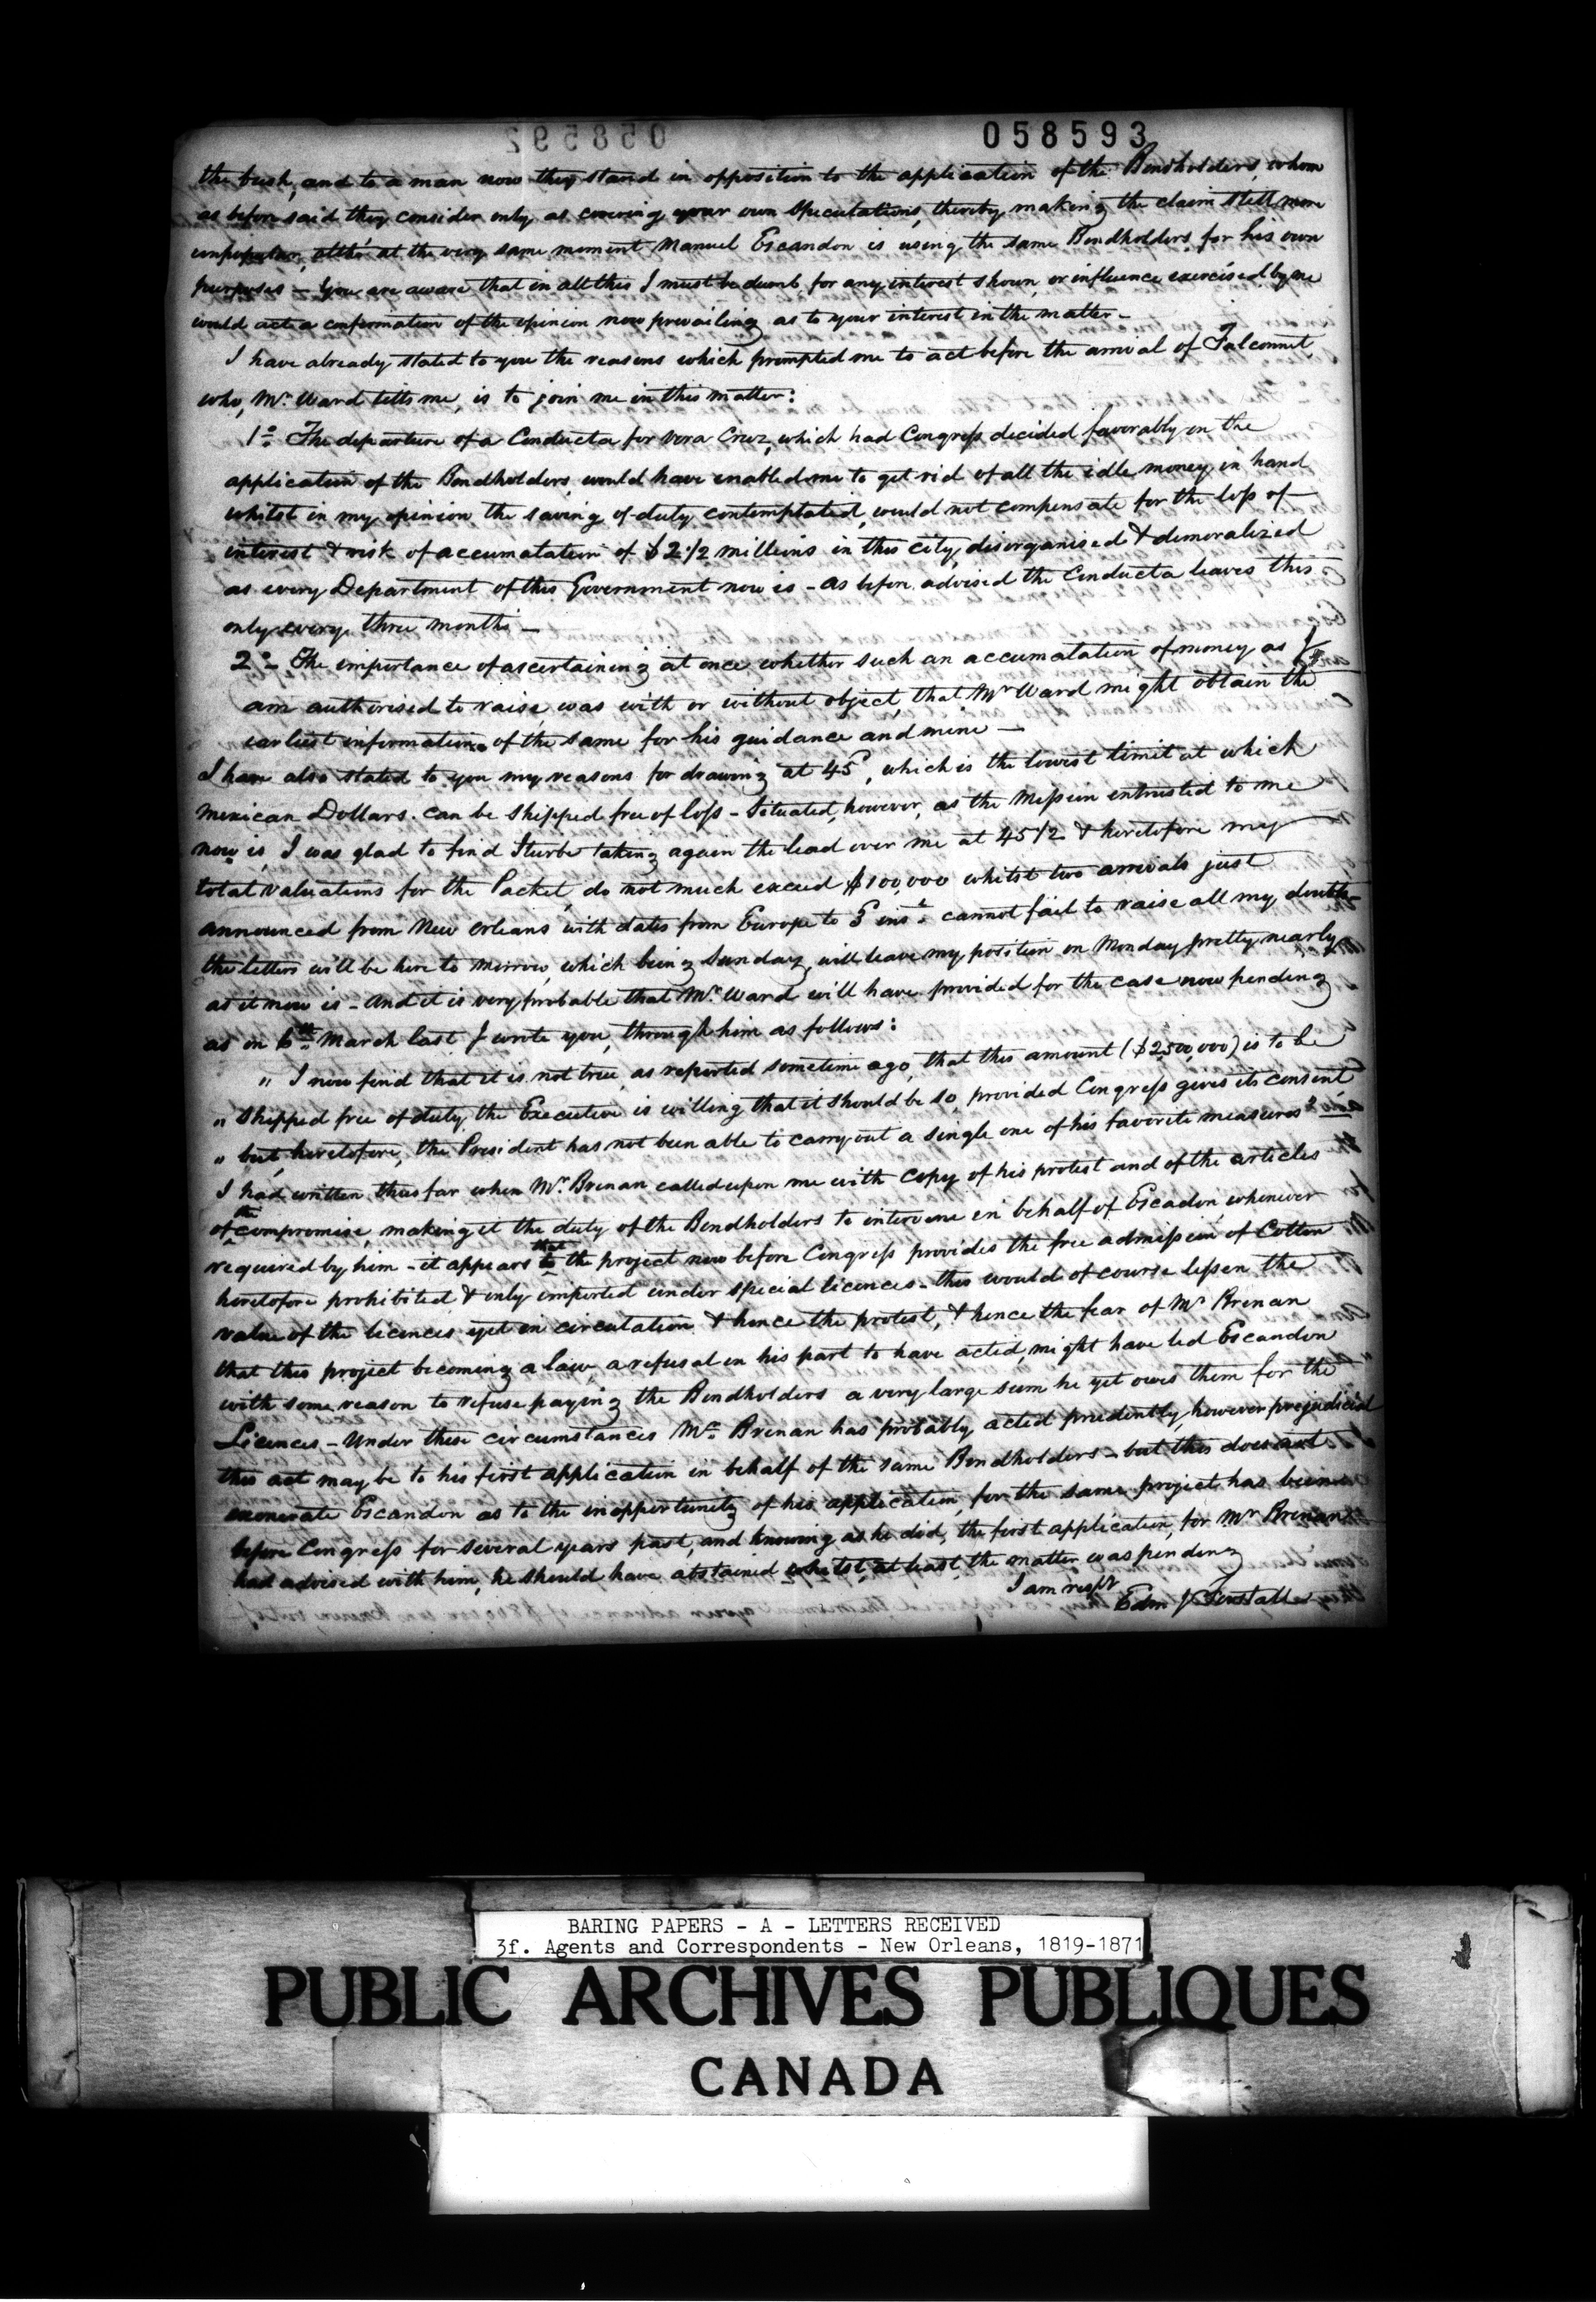 058593
the bush, and to a man now they stand in opposition to the application of the Bondholders, whom
as before said they consider only as covering your own Speculations, thereby making the claim still more
unpopular, altho' at the very same moment Manuel Escandon is using the same Bondholders for his own
purposes – You are aware that in all this I must be dumb for any interest shown, or influence exercised by me
would act a confirmation of the opinion now prevailing as to your interest in the matter –
I have already stated to you the reasons which prompted me to act before the arrival of Falconnet
who, Mr. Ward tells me, is to join me in this matter:
1o. The departure of a Conducta for Vera Cruz, which had Congress decided favorably on the
application of the Bondholders, would have enabled me to get rid of all the idle money in hand
whilst in my opinion the saving of duty contemplated, would not compensate for the loss of
interest & risk of accumatation of $2 1/2 millions in this city, disorganised & demoralized
as every Department of this Government now is – as before advised the Conducta leaves this
only every three months –
2o – The importance of ascertaining at once whether such an accumatation of money as I
am authorised to raise, was with or without object, that Mr Ward might obtain the
earliest information of the same for his guidance and mine –
I have also stated to you my reasons for drawing at 45, which is the lowest limit at which
Mexican Dollars can be shipped free of loss – Situated, however, as the Mission entrusted to me
now is, I was glad to find Iturbe taking again the lead over me at 45 1/2 & heretofore my
total valuations for the Packet, do not much exceed $100,000 whilst two arrivals just
announced from New Orleans with dates from Europe to 3 inst. cannot fail to raise all my doubts –
the letters will be here to morrow, which being Sunday, will leave my position on Monday pretty nearly
as it now is – And it is very probable that Mr. Ward will have provided for the case now pending
as on 6th March last I wrote you, through him as follows:
" I now find that it is not true, as reported sometime ago, that this amount ($2,500,000) is to be
" shipped free of duty, the Executive is willing that it should be so, provided Congress gives its consent
" but, heretofore, the President has not been able to carry out a single one of his favorite measures"
I had written thus far when Mr. Brenan called upon me with copy of his protest and of the articles
of the compromise, making it the duty of the Bondholders to intervene in behalf of Escadon whenever
required by him – it appears that the project now before Congress provides the free admission of Cotton
heretofore prohibited & only imported under special licences – this would of course lessen the
value of the licences yet in circulation & hence the protest, & hence the fear of Mr Brenan
that this project becoming a law, a refusal on his part to have acted, might have led Escandon
with some reason to refuse paying the Bondholders a very large sum he yet owes them for the
Licences – Under these circumstances Mr. Brenan has probably acted prudently, however prejudicial
this act may be to his first application in behalf of the same Bondholders – but this does not
exonerate Escandon as to the inopportunity of his application, for the same project has been
before Congress for several years past, and knowing as he did, the first application, for Mr Brenan
had advised with him, he should have abstained whilst, at least, the matter was pending
I am respy
Edm J Forstall
BARING PAPERS - A - LETTERS RECEIVED
3f. Agents and Correspondents - New Orleans, 1819-1871
PUBLIC ARCHIVES PUBLIQUES
CANADA